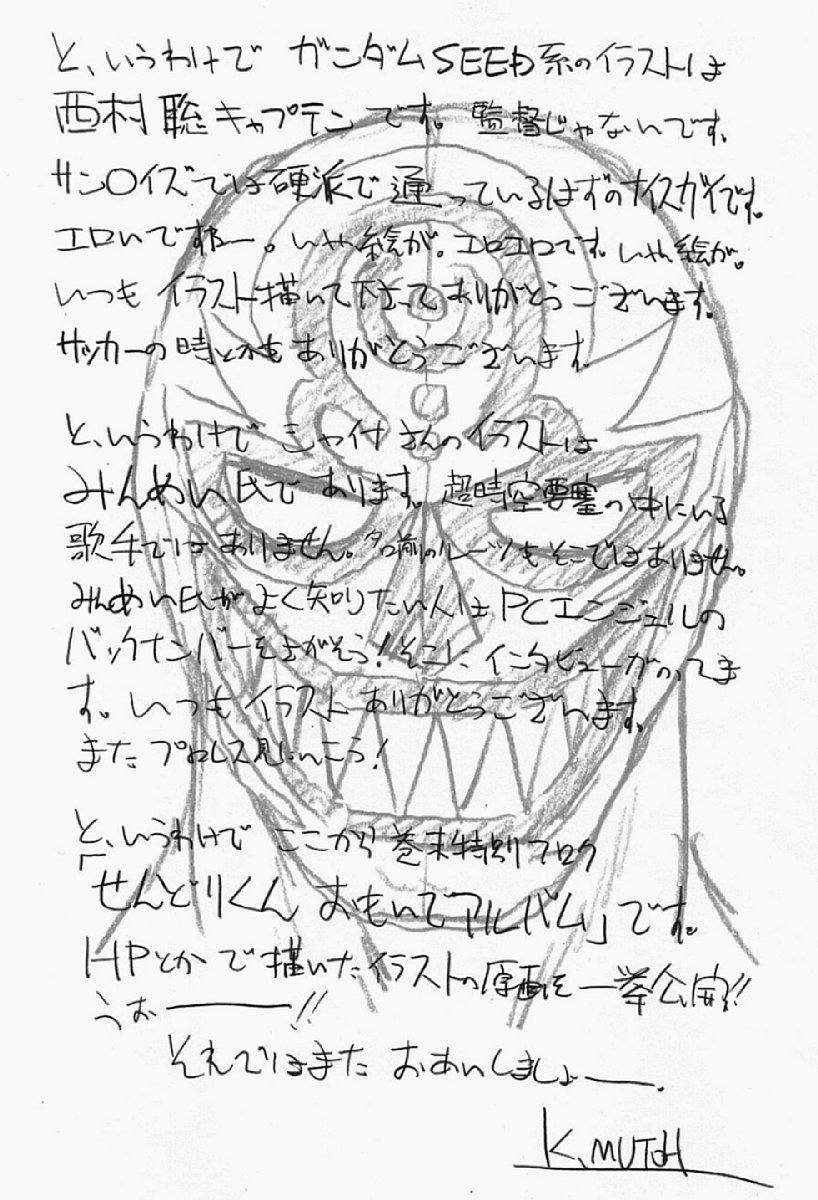 と、いうわけで ガンダムSEED系のイラストは
西村聡キャプテンです。監督じゃないです。
サン○イズでは硬派で通っているはずのナイスガイです。
エロいですねー。いや絵が。エロエロです。いや絵が。
いつもイラスト描いて下さってありがとうございます。
サッカーの時とかもありがとうございます。
と、いうわけで シャイナさんのイラストは
みんめい氏であります。超時空要塞の中にいる
歌手ではありません。名前のルーツもそこではありません。
みんめい氏がよく知りたい人はPCエンジェルの
バックナンバーをさがそう!そこにインタビューがのってま
す。いつもイラストありがとうございます。
またプロレス見にいこう!
と、いうわけで ここから巻末特別フロク
「せんどりくん おもいでアルバム」です。
HPとかで描いたイラストの原画を一挙公開!!
うぉーーー!!
それではまた おあいしましょーー。
K.MUTOH